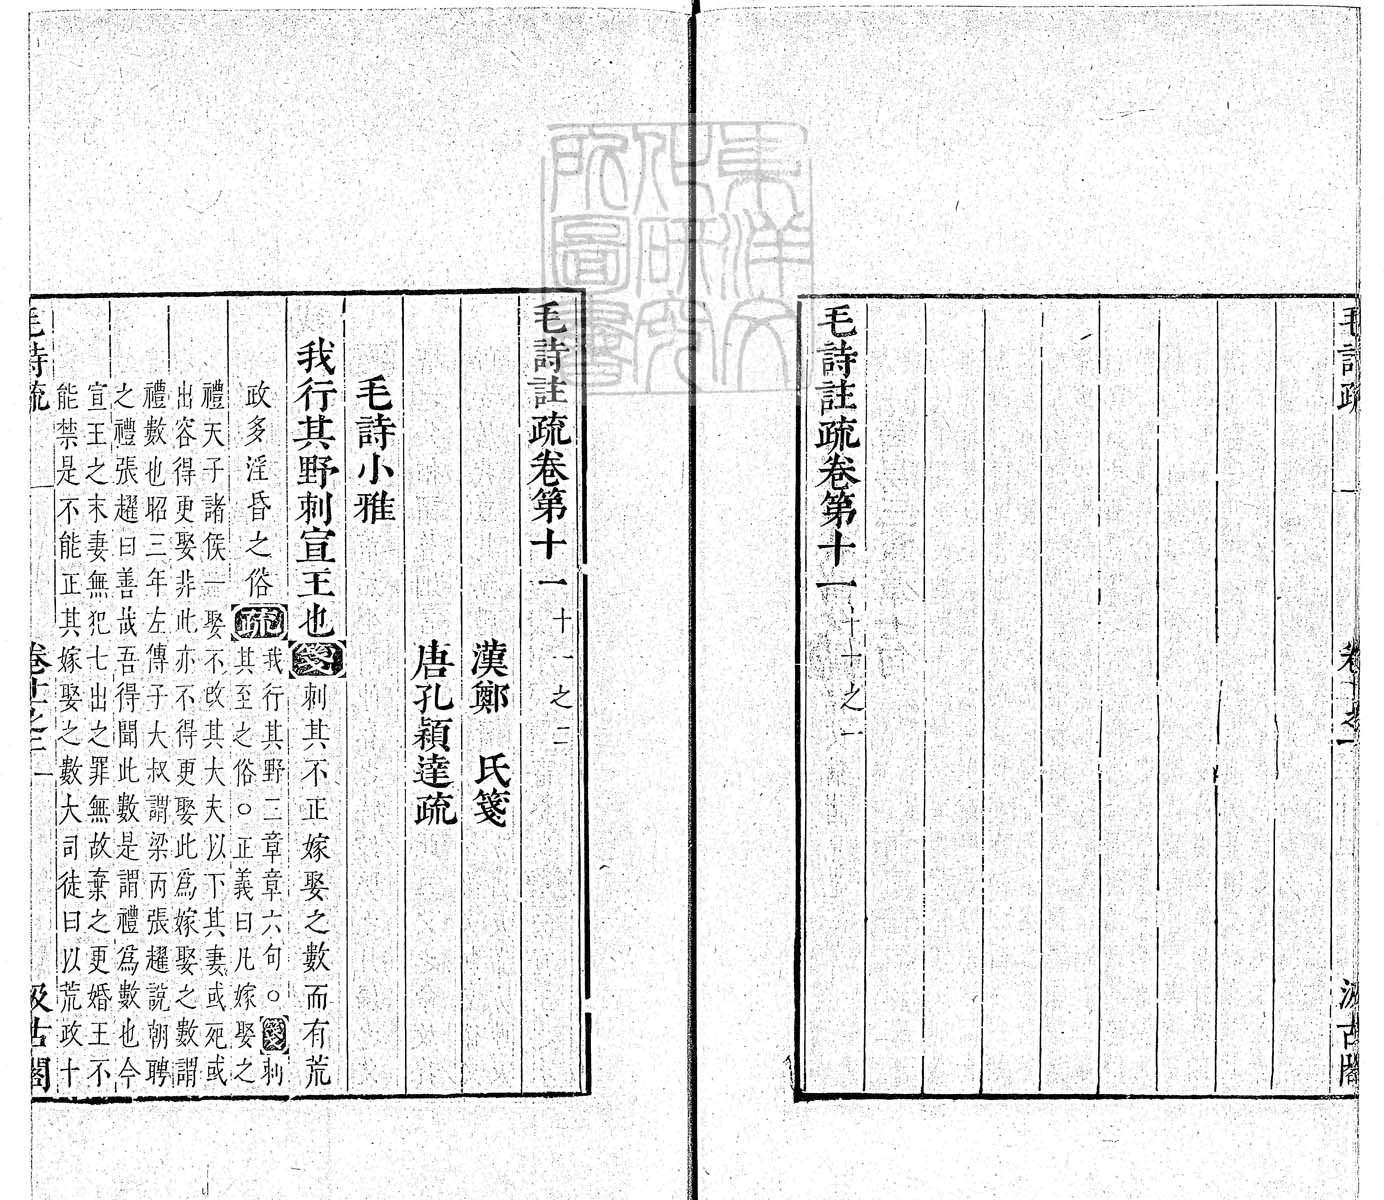 毛詩疏
卷十一之一
汲古閣
毛詩註疏卷第十一 十一之一
東洋文
化研究
所圖書
毛詩註疏卷第十一 十一之二
漢鄭 氏箋
唐孔穎達疏
毛詩小雅
我行其野刺宣王也箋刺其不正嫁娶之數而有荒
政多淫昏之俗疏我行其野三章章六句○箋刺
其至之俗○正義曰凡嫁娶之
禮天子諸侯一娶不改其大夫以下其妻或死或
出容得更娶非此亦不得更娶此爲嫁娶之數謂
禮數也昭三年左傳子大叔謂梁丙張趯說朝聘
之禮張趯曰善哉吾得聞此數是謂禮爲數也今
宣王之末妻無犯七出之罪無故棄之更婚王不
能禁是不能正其嫁娶之數大司徒曰以荒政十
毛詩疏
卷十一之二 一
汲古閣